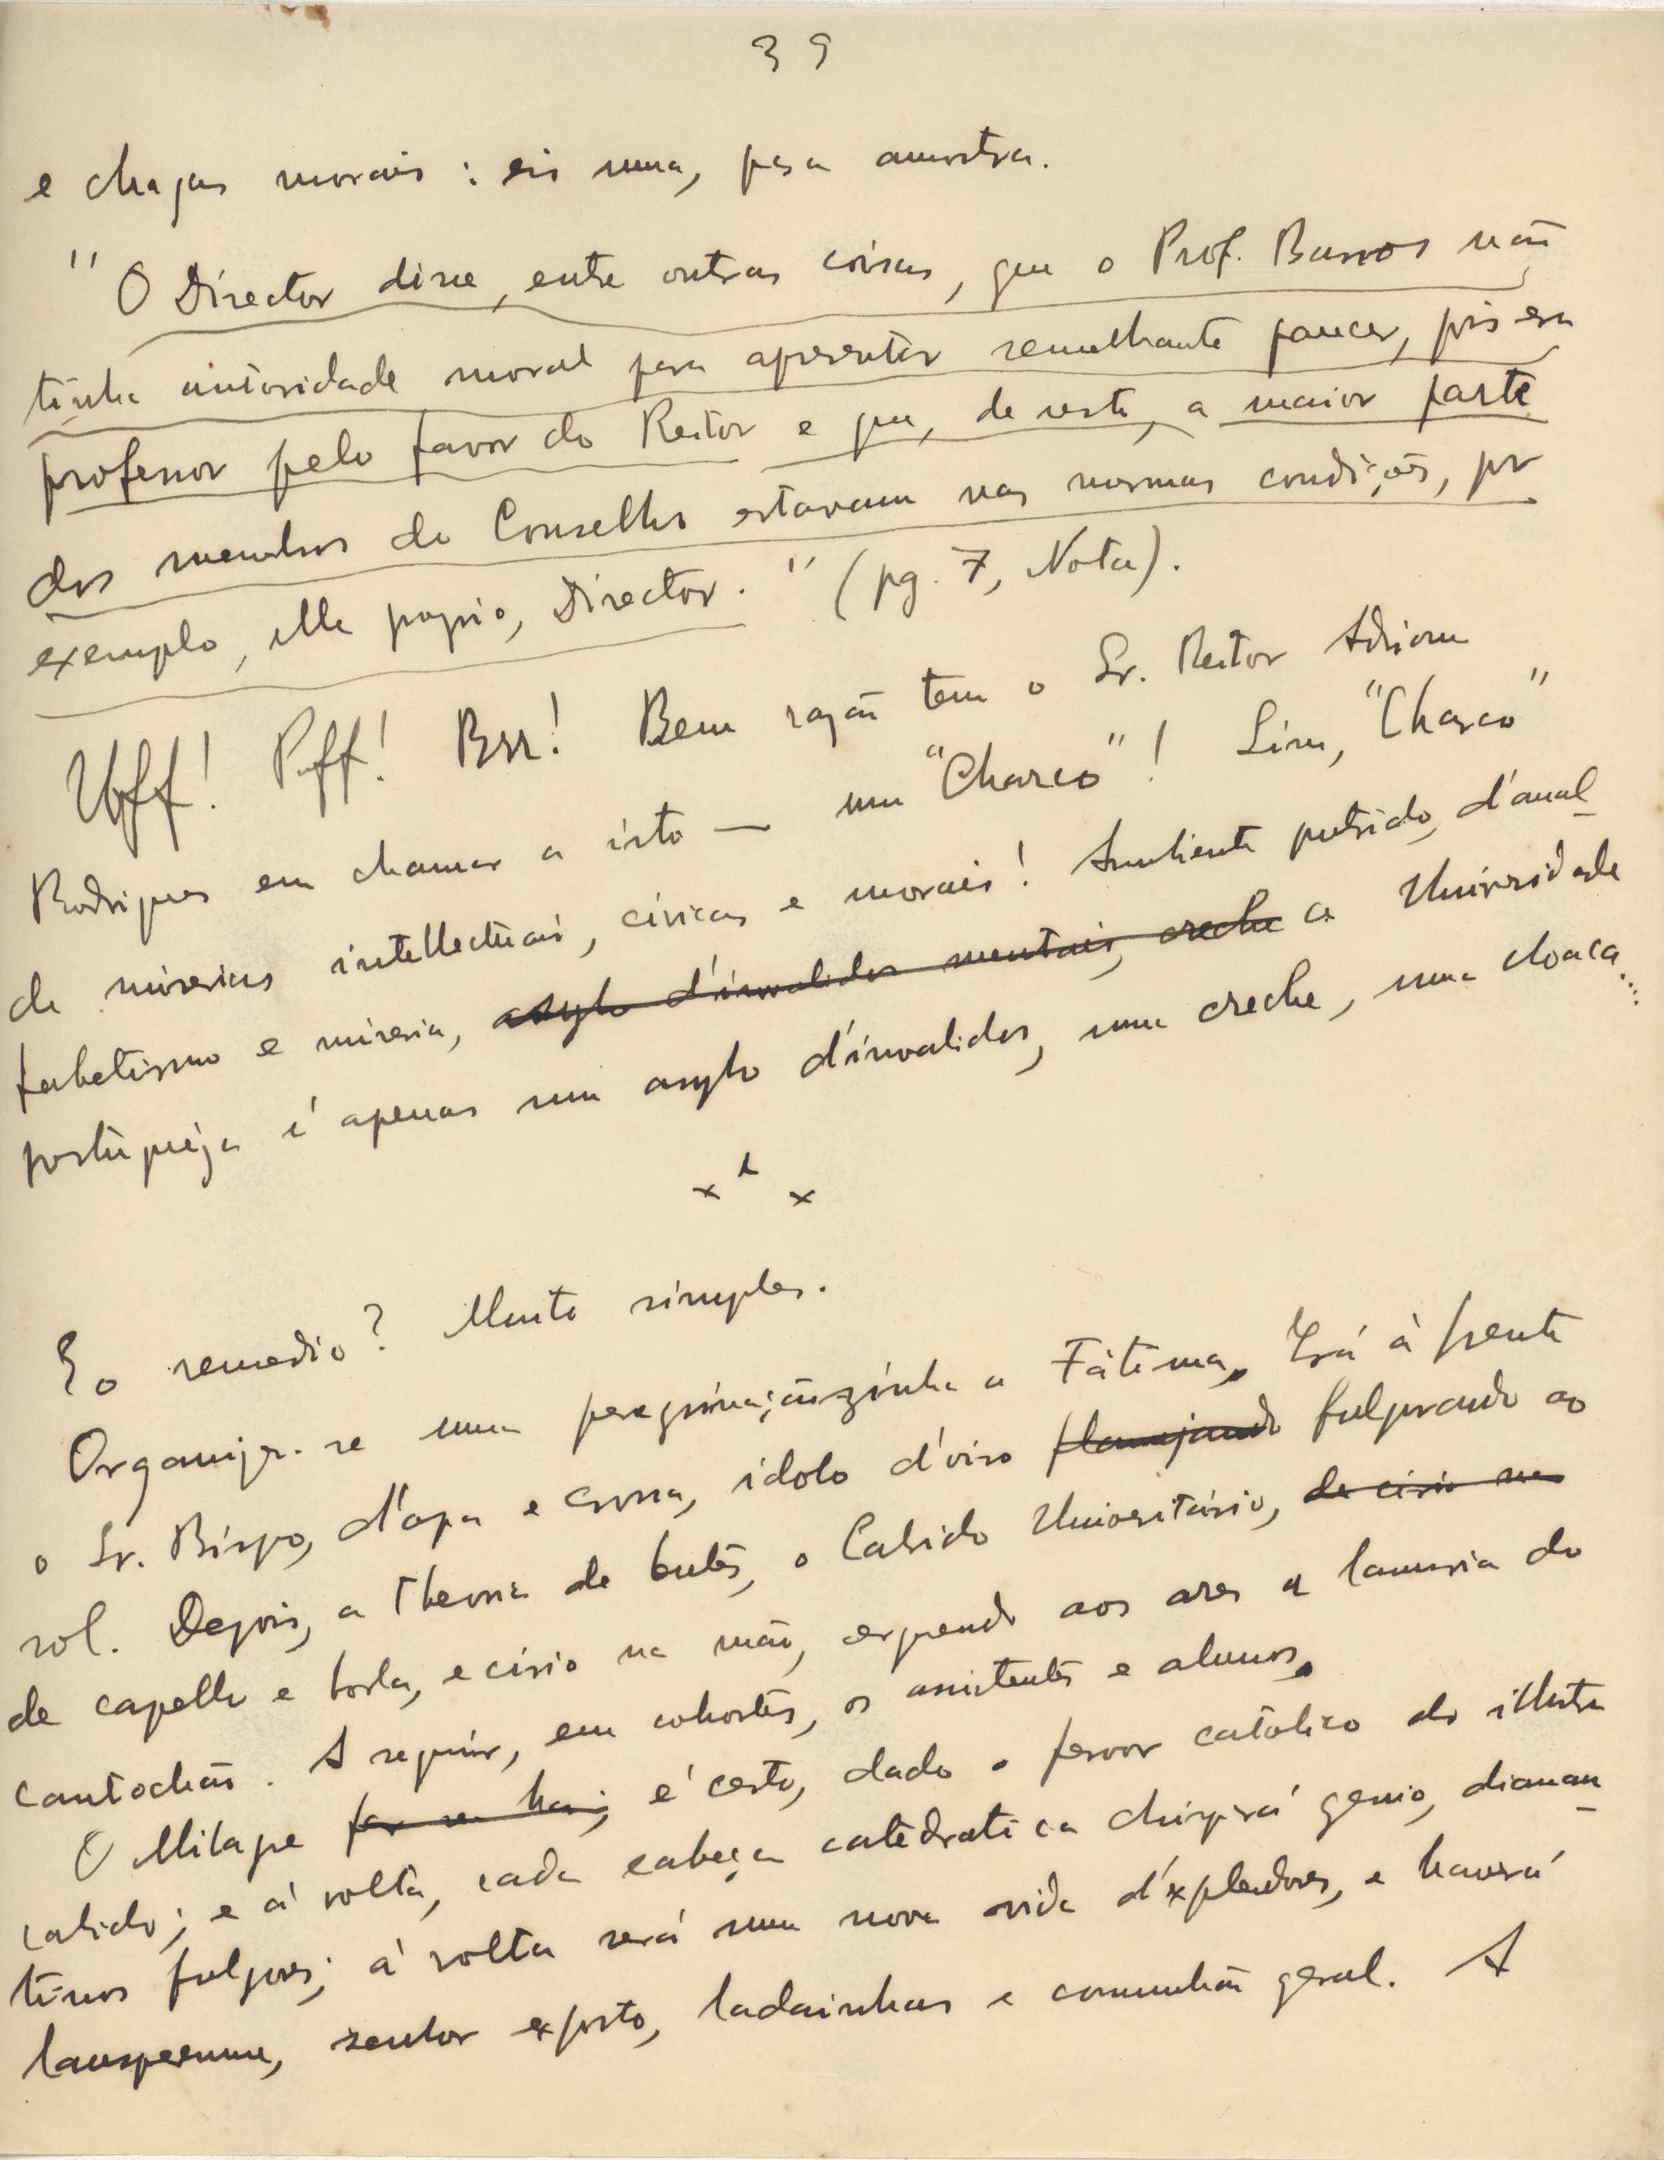 39
e chagas morais: eis uma, para amostra.
"O Director disse, entre outras coisas, que o Prof. Barros não
tinha autoridade moral para apresentar semelhante parecer, pois era
professor pelo favor do Reitor e que, de resto, a maior parte
dos membros do Conselho estavam nas mesmas condições, por
exemplo, elle proprio, Director." (pg. 7, Nota).
Uff! Puff! Brr! Bem razão tem o Sr. Reitor Adriano
Rodrigues em chamar a isto — um "Charco"! Sim, "Charco"
de miserias intellectuais, civicas e morais! Ambiente putrido, d'anal-
fabetismo e miseria, asylo d'invalidos mentais, creche a Universidade
portuguêza é apenas um asylo d'invalidos, uma creche, uma cloaca...
x x x
E o remedio? Muito simples.
Organize-se uma peregrinaçãozinha a Fátima. Irá à frente
o Sr. Bispo, d'opa e coroa, idolo d'oiro flamejando fulgurando ao
sol. Depois, a theoria de lentes, o Cabido Universitário, de cirio na
de capello e borla, e cirio na mão, erguendo aos ares a lamuria do
cantochão. A seguir, em cohortes, os assistentes e alunos.
O Milagre é certo, dado o fervor católico do illustre
cabido; e á volta, cada cabeça catedratica chispará genio, diaman-
tinos fulgores; á volta será uma nova vida d'explendores, e haverá
lausperenne, senhor exposto, ladainhas e comunhão geral. A